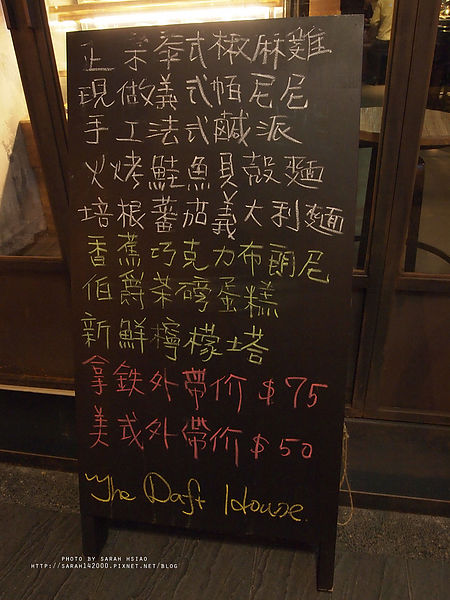 正宗泰式椒麻雞
現做義式帕尼尼
手工法式鹹派
火烤鮭魚貝殼麵
培根蕃茄義大利麵
香蕉巧克力布朗尼
伯爵茶磅蛋糕
新鮮檸檬塔
拿鉄外帶价 $75
美式外帶价 $50
The Daft House.
PHOTO BY SARAH HSIAO
HTTP://SARAH142000.PIXNET.NET/BLOG